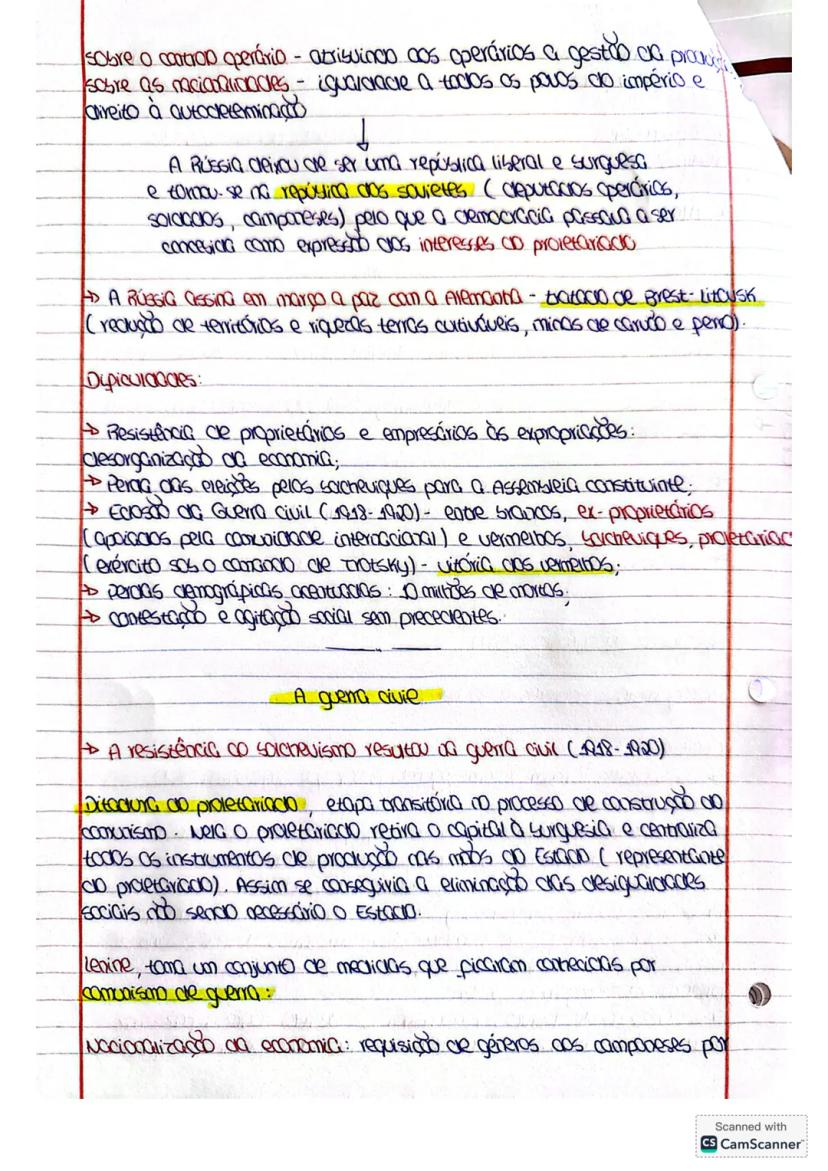 sobre o controlo operário - atribuindo aos operários a gestão da produção
sobre as nacionalidades - igualdade a todos os povos do império e
direito à autodeterminação
↓
A Rússia deixou de ser uma república liberal e burguesa
e tornou-se na república dos sovietes (deputados operários,
soldados, camponeses) pelo que a democracia passaria a ser
concebida como expressão dos interesses do proletariado
→ A Rússia assina em março a paz com a Alemanha - tratado de Brest-Litovsk
(redução de territórios e riquezas terras cultiváveis, minas de carvão e ferro).
Dificuldades:
→ Resistência de proprietários e empresários às expropriações:
desorganização da economia;
→ Perda das eleições pelos bolcheviques para a Assembleia constituinte;
→ Eclosão da Guerra civil (1918-1920) - entre brancos, ex-proprietários
(apoiados pela comunidade internacional) e vermelhos, bolcheviques, proletariad
(exército sob o comando de Trotsky) - vitória dos vermelhos;
→ Perdas demográficas acentuadas: 10 milhões de mortos;
→ contestação e agitação social sem precedentes.
A guerra civil
→ A resistência ao bolchevismo resultou da guerra civil (1918-1920)
Ditadura do proletariado, etapa transitória no processo de construção do
comunismo. Nela o proletariado retira o capital à burguesia e centraliza
todos os instrumentos de produção nas mãos do Estado (representante
do proletariado). Assim se conseguiria a eliminação das desigualdades
sociais não sendo necessário o Estado.
Lenine, toma um conjunto de medidas que ficaram conhecidas por
comunismo de guerra:
Nacionalização da economia: requisição de géneros aos camponeses por
Scanned with
CS CamScanner